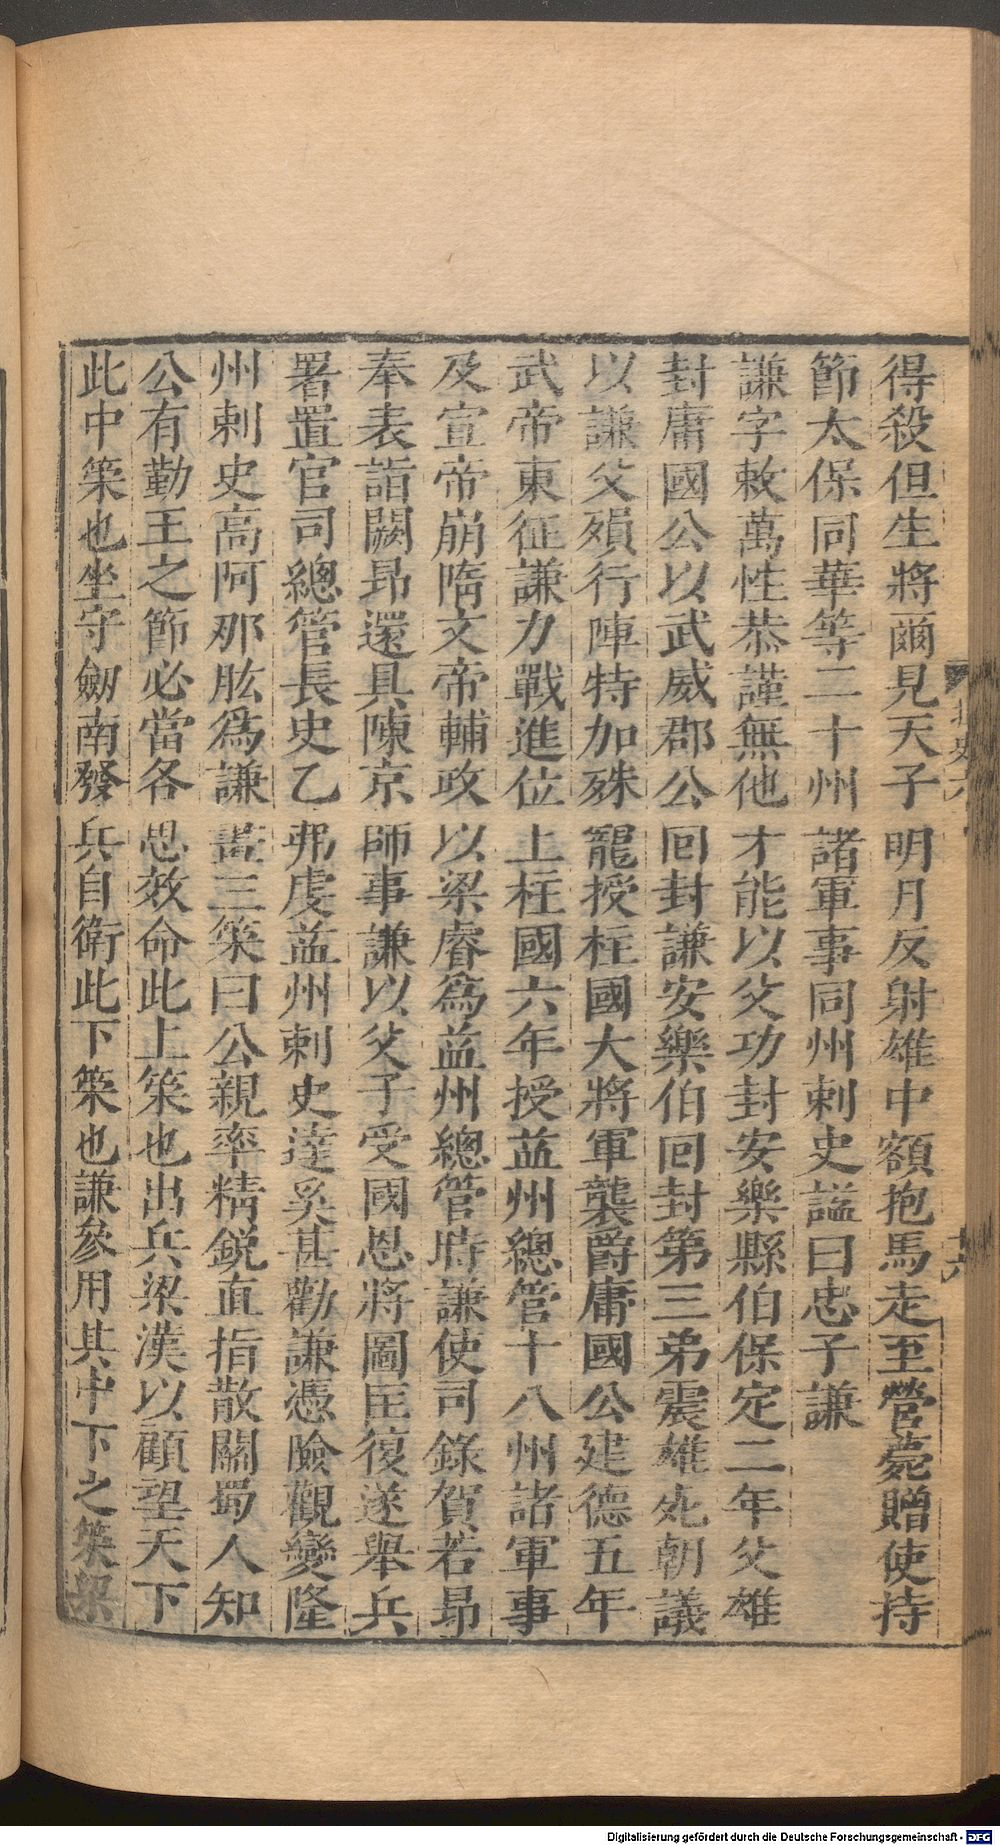 得殺但生將爾見天子明月反射雄中額抱馬走至營薨贈使持
節太保同華等二十州諸軍事同州剌史謚曰忠子謙
謙字敕萬性恭謹無他才能以父功封安樂縣伯保定二年父雄
封庸國公以武威郡公回封謙安樂伯回封第三弟震雄死朝議
以謙父殞行陣特加殊寵授柱國大將軍襲爵庸國公建德五年
武帝東征謙力戰進位上柱國六年授益州總管十八州諸軍事
及宣帝崩隋文帝輔政以梁睿爲益州總管時謙使司錄賀若昂
奉表詣闕昂還具陳京師事謙以父子受國恩將圖匡復遂舉兵
署置官司總管長史乙弗虔益州剌史達奚甚勸謙憑險觀變隆
州剌史高阿那肱爲謙畫三策曰公親率精鋭直指散關蜀人知
公有勤王之節必當各思效命此上策也出兵梁漢以顧望天下
此中策也坐守劒南發兵自衛此下策也謙參用其中下之策梁
十六
Digitalisierung gefördert durch die Deutsche Forschungsgemeinschaft - DFG